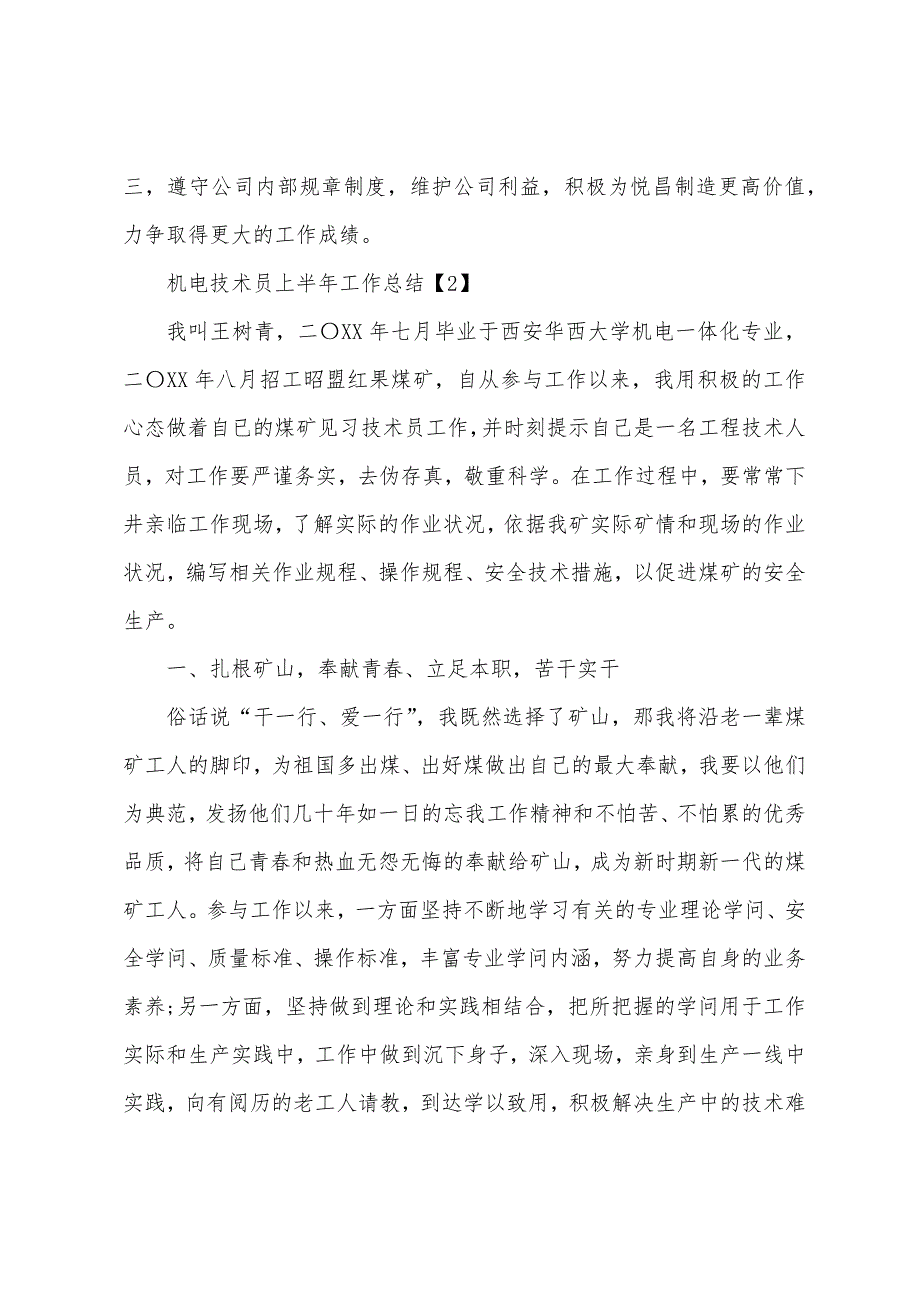 三，遵守公司内部规章制度，维护公司利益，积极为悦昌制造更高价值，
力争取得更大的工作成绩。
机电技术员上半年工作总结【2】
我叫王树青，二〇XX 年七月毕业于西安华西大学机电一体化专业，
二〇XX 年八月招工昭盟红果煤矿，自从参与工作以来，我用积极的工作
心态做着自已的煤矿见习技术员工作，并时刻提示自己是一名工程技术人
员，对工作要严谨务实，去伪存真，敬重科学。在工作过程中，要常常下
井亲临工作现场，了解实际的作业状况，依据我矿实际矿情和现场的作业
状况，编写相关作业规程、操作规程、安全技术措施，以促进煤矿的安全
生产。
一、扎根矿山，奉献青春、立足本职，苦干实干
俗话说“干一行、爱一行”，我既然选择了矿山，那我将沿老一辈煤
矿工人的脚印，为祖国多出煤、出好煤做出自己的最大奉献，我要以他们
为典范，发扬他们几十年如一日的忘我工作精神和不怕苦、不怕累的优秀
品质，将自己青春和热血无怨无悔的奉献给矿山，成为新时期新一代的煤
矿工人。参与工作以来，一方面坚持不断地学习有关的专业理论学问、安
全学问、质量标准、操作标准，丰富专业学问内涵，努力提高自身的业务
素养;另一方面，坚持做到理论和实践相结合，把所把握的学问用于工作
实际和生产实践中，工作中做到沉下身子，深入现场，亲身到生产一线中
实践，向有阅历的老工人请教，到达学以致用，积极解决生产中的技术难